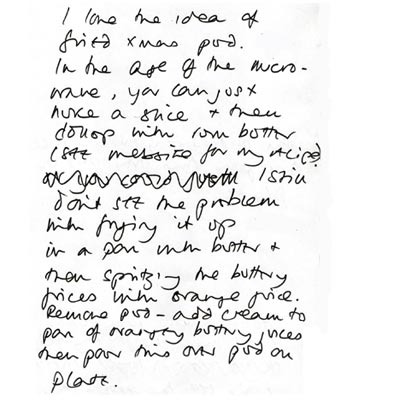 I love the idea of
fried xmas pud.
In the age of the micro-
wave, you can just
nuke a slice + then
dollop with rum butter
(see website for my recipe)
I still
don't see the problem
with frying it up
in a pan with butter +
then spritzing the buttery
juices with orange juice.
Remove pud - add cream to
pan of orangey buttery juices
then pour this over pud on
plate.